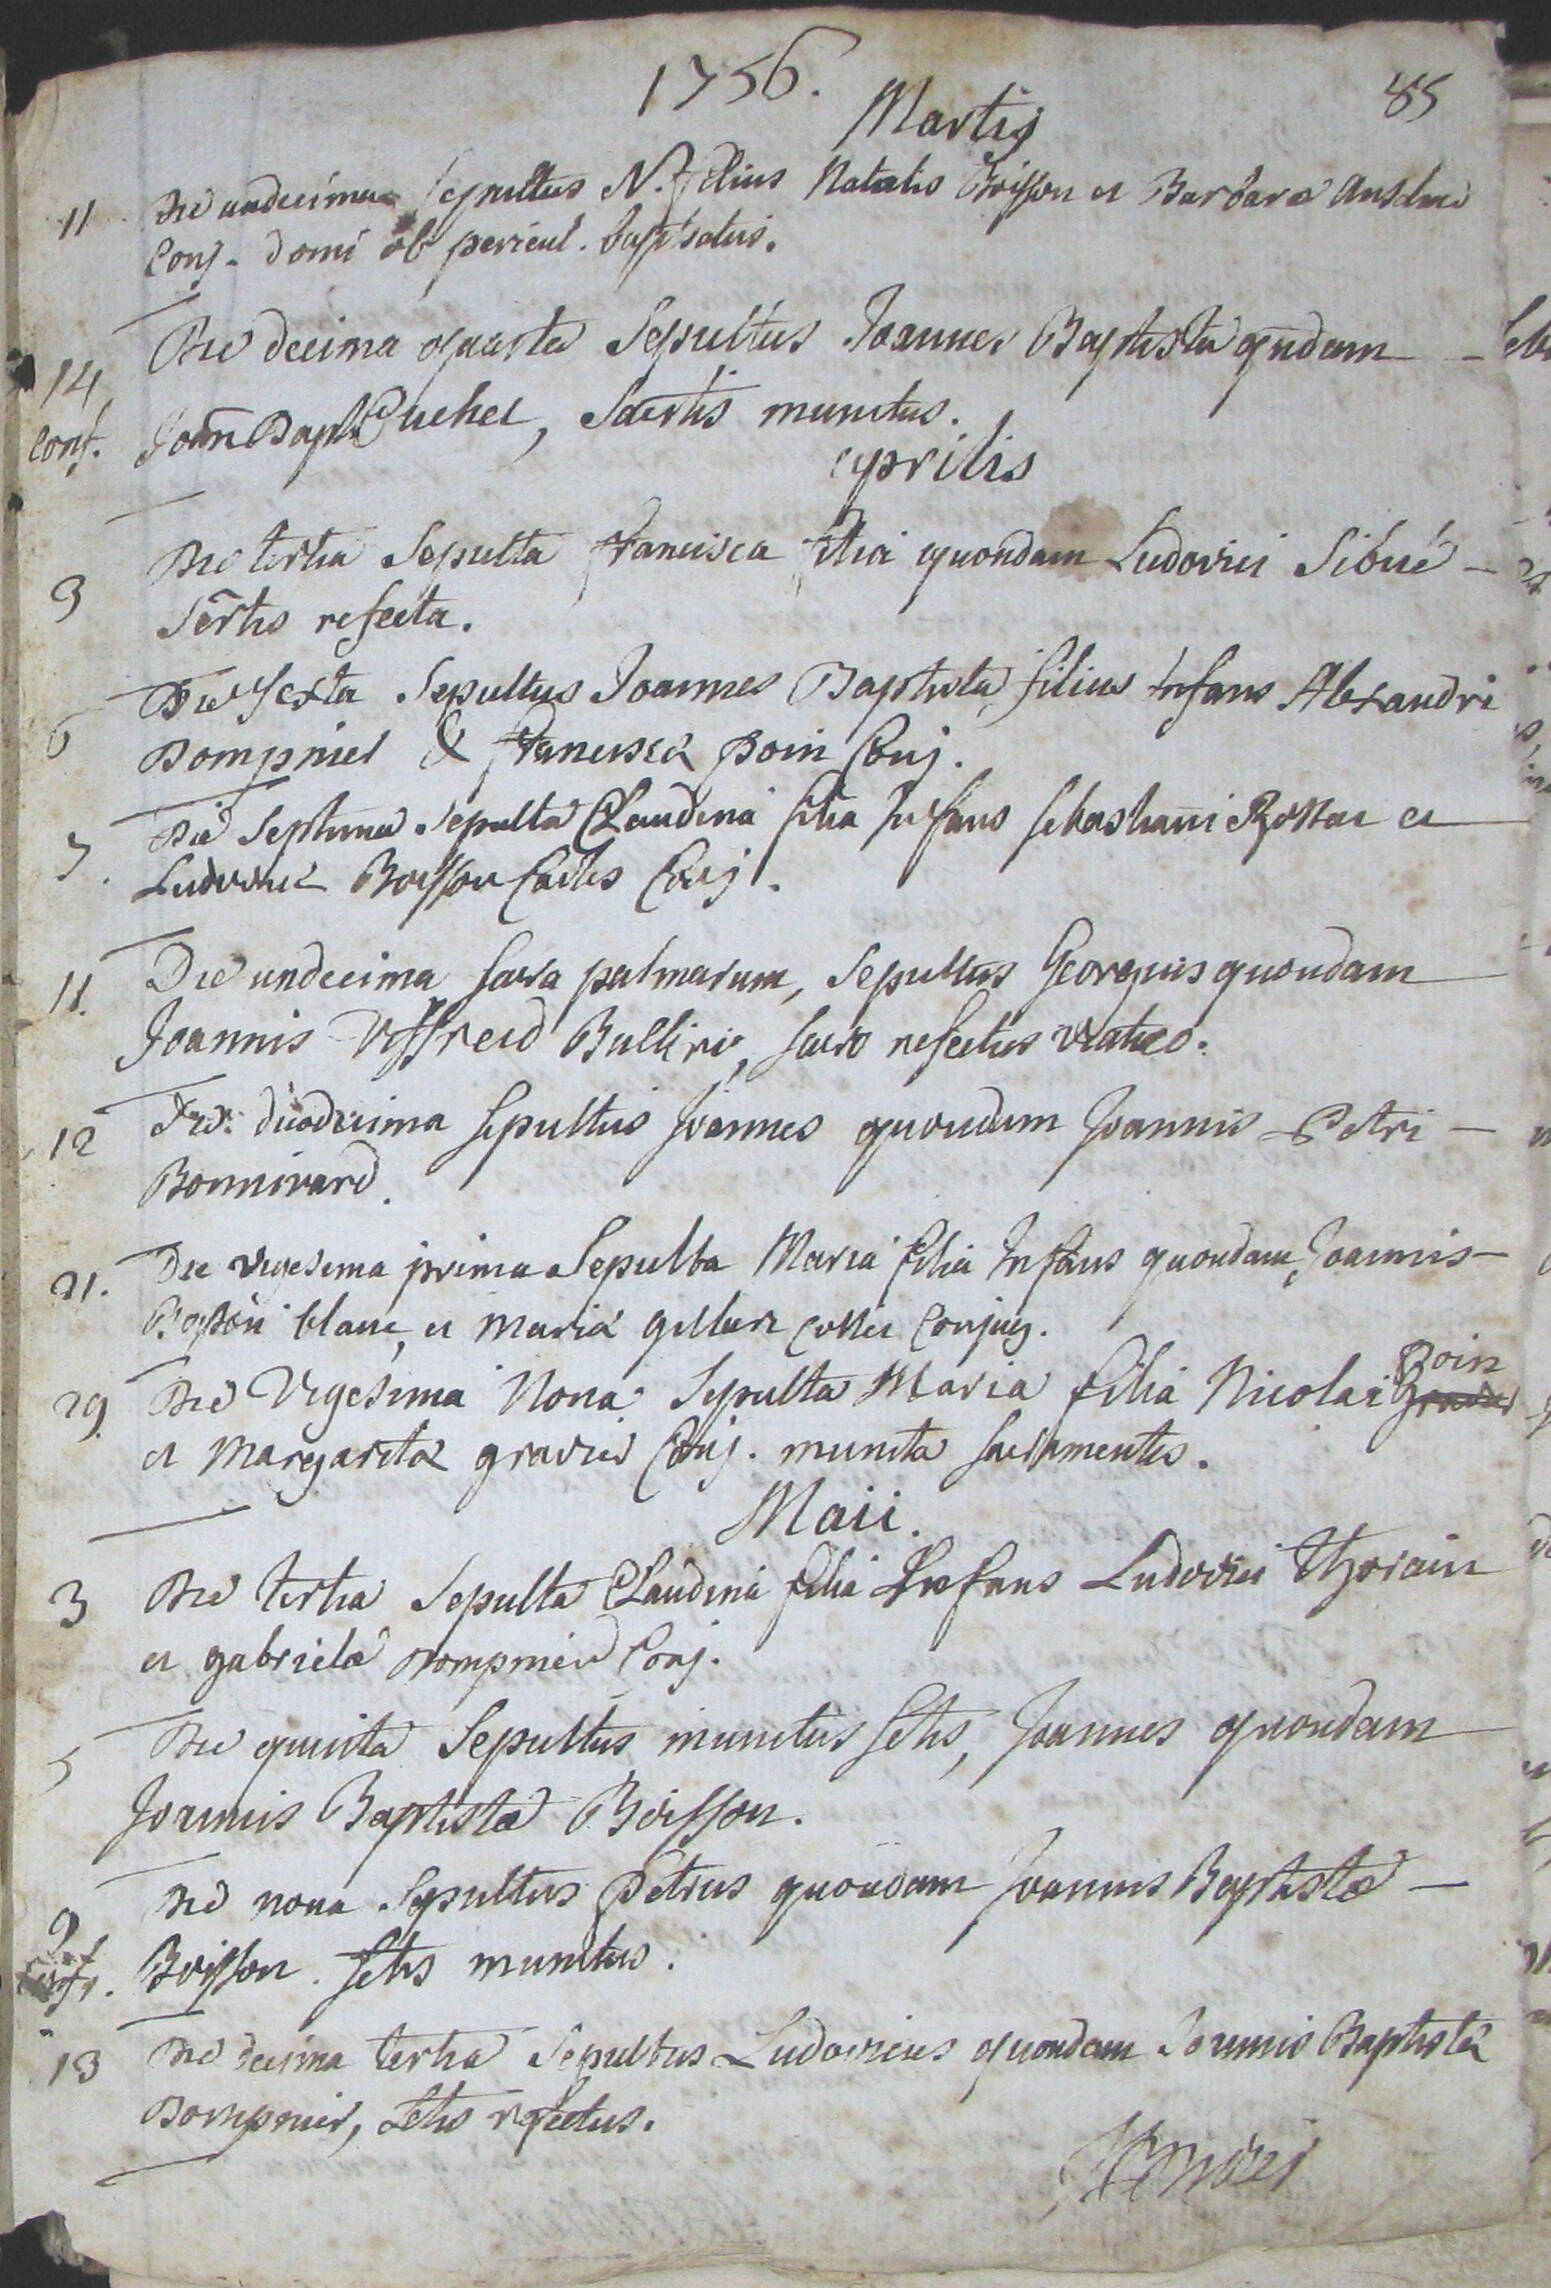 1756.
85
Martis
11 Die undecima Sepultus N. filius Natalis Boisson et Barbaræ Anselme
Conj. domi ob pericul. baptisatus.
14 Die decima quarta Sepultus Joannes Baptista qndam
conf. Joan Bapt Cuchet, Sacrtis munitus.
Aprilis
3 Die tertia Sepulta Francisca filia quondam Ludovici Sibué
Scrtis refecta.
6 Die Sexta Sepultus Joannes Baptista filius Infans Alexandri
Dompnier & Franciscæ Boin Conj.
7. Die Septima Sepulta Claudina filia Infans Sebastiani et
Ludovicæ Boisson Conj.
11. Die undecima Sacra palmarum, Sepultus Georgius quondam
Joannis Vffreid Sacro refectus viatico.
12 Die duodecima Sepultus Joannes quondam Joannis Petri
Bonnivard.
21. Die vigesima prima Sepulta Maria filia Infans quondam Joannis
blanc, et Mariæ Conjug.
29. Die Vigesima Nona Sepulta Maria filia Nicolai Boin
et Margaritæ gravier Conj. munita sacramentis.
Maii.
3 Die tertia Sepulta Claudina filia Infans Ludovici Thorain
et gabrielæ Dompnier Conj.
5 Die quinta Sepultus munitus Sctis, Joannes quondam
Joannis Baptistæ Boisson.
9 Die nona Sepultus Petrus quondam Joannis Baptistæ
Conf. Boisson. Sctis munitus.
13 Die decima tertia Sepultus Ludovicus quondam Joannis Baptistæ
Dompnier, Sctis refectus.